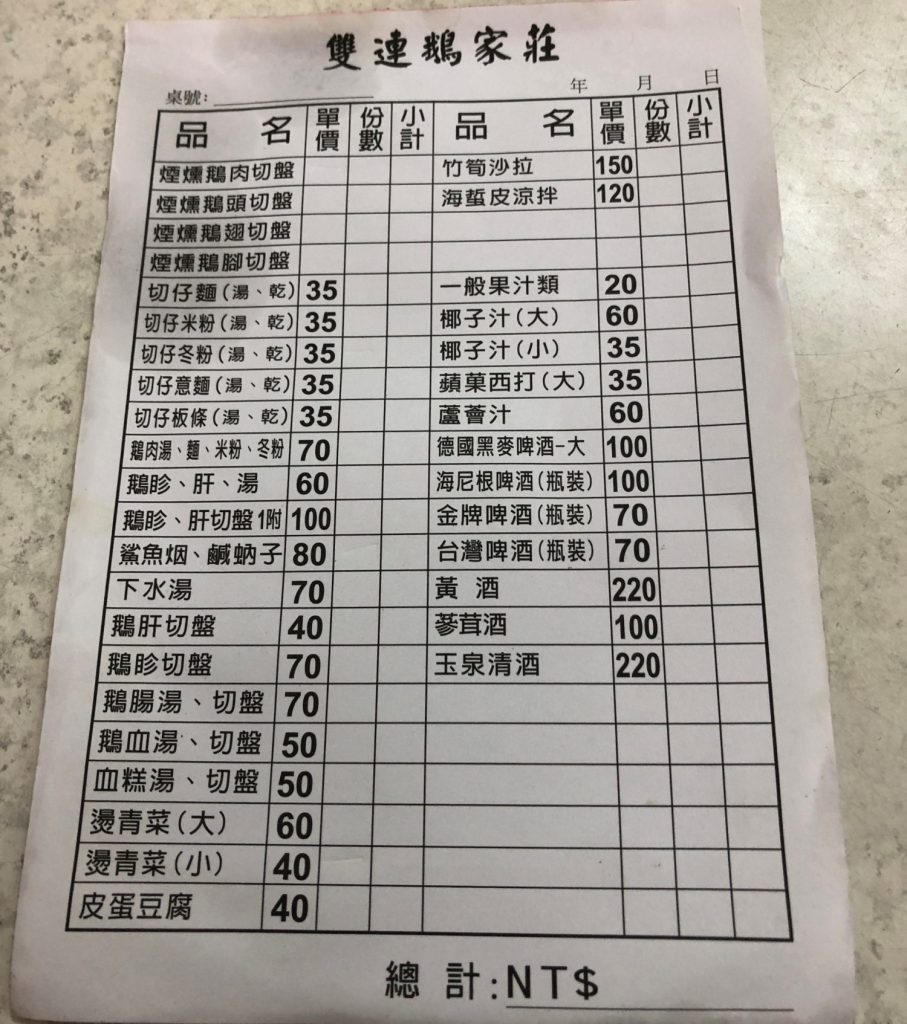 雙連鵝家莊
桌號: 年 月 日
品 名 單價 份數 小計 品 名 單價 份數 小計
煙燻鵝肉切盤 竹筍沙拉 150
煙燻鵝頭切盤 海蜇皮涼拌 120
煙燻鵝翅切盤
煙燻鵝腳切盤
切仔麵(湯、乾) 35 一般果汁類 20
切仔米粉(湯、乾) 35 椰子汁(大) 60
切仔冬粉(湯、乾) 35 椰子汁(小) 35
切仔意麵(湯、乾) 35 蘋菓西打(大) 35
切仔板條(湯、乾) 35 蘆薈汁 60
鵝肉湯、麵、米粉、冬粉 70 德國黑麥啤酒-大 100
鵝眕、肝、湯 60 海尼根啤酒(瓶裝) 100
鵝眕、肝切盤1附 100 金牌啤酒(瓶裝) 70
鯊魚烟、鹹蚋子 80 台灣啤酒(瓶裝) 70
下水湯 70 黃 酒 220
鵝肝切盤 40 蔘茸酒 100
鵝眕切盤 70 玉泉清酒 220
鵝腸湯、切盤 70
鵝血湯、切盤 50
血糕湯、切盤 50
燙青菜(大) 60
燙青菜(小) 40
皮蛋豆腐 40
總 計:NT$